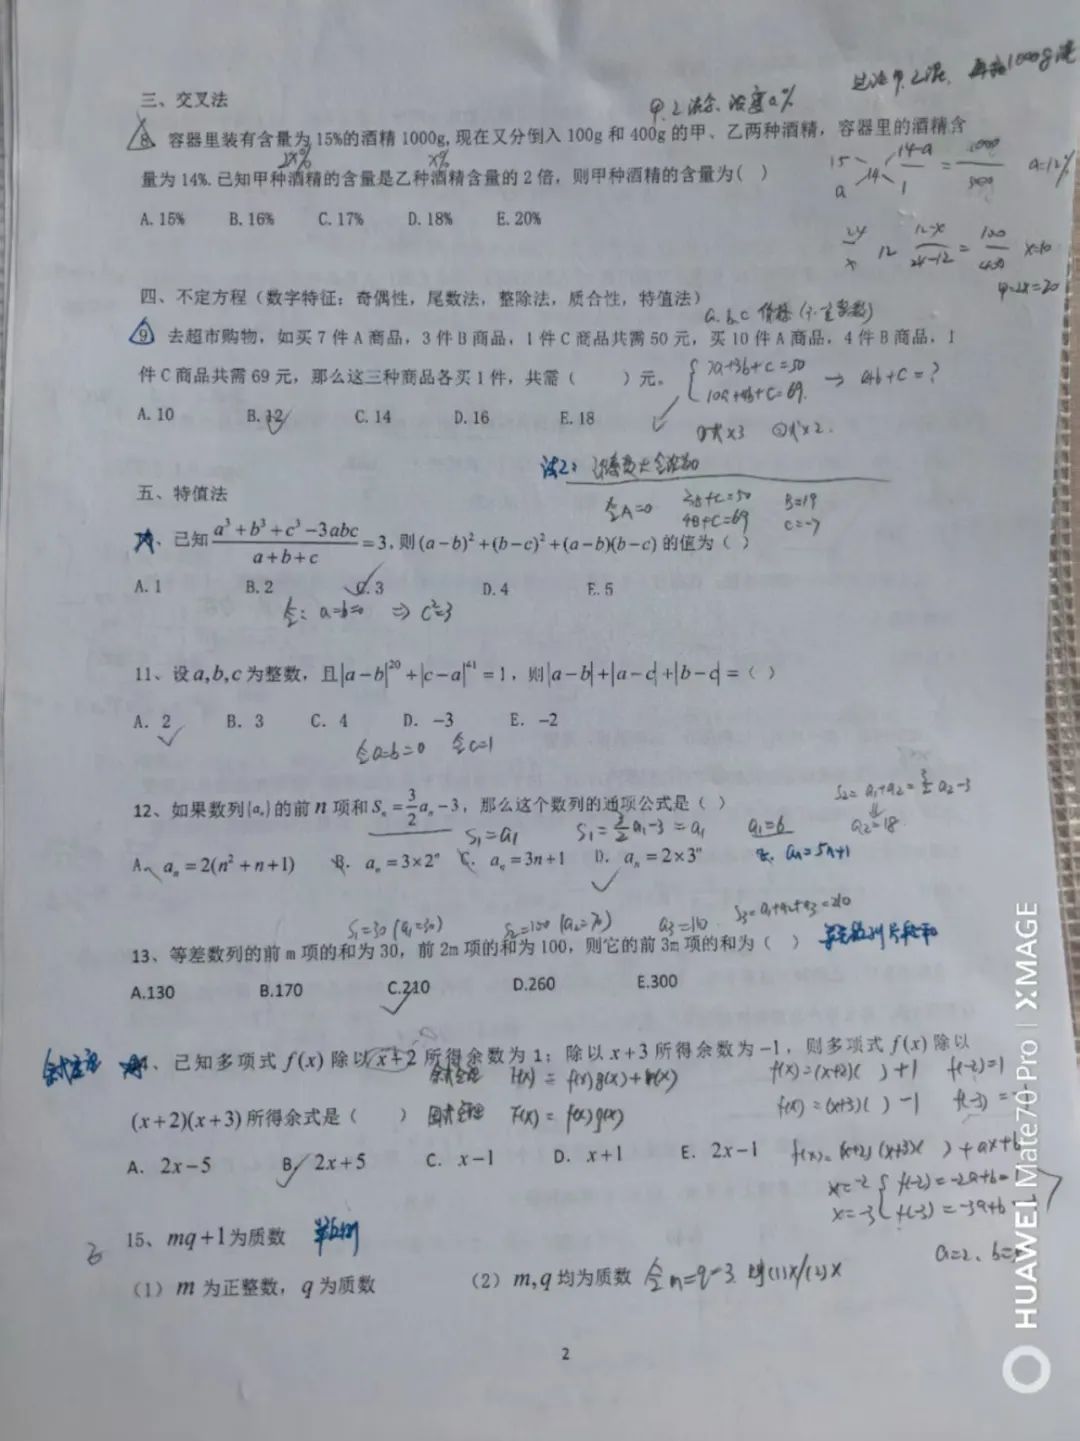 过法甲.乙混. 再和1000g混
三、交叉法
甲.乙混合.浓度a%
8、容器里装有含量为15%的酒精1000g,现在又分倒入100g和400g的甲、乙两种酒精，容器里的酒精含
2x% x%
量为14%.已知甲种酒精的含量是乙种酒精含量的2倍，则甲种酒精的含量为( )
15 14 14-a = 1000 a=12%
a 1
A.15% B.16% C.17% D.18% E.20%
2x 12 12-x = 100 x=10
x 2x-12 400
甲=2x=20
四、不定方程（数字特征：奇偶性，尾数法，整除法，质合性，特值法）
9、去超市购物，如买7件A商品，3件B商品，1件C商品共需50元，买10件A商品，4件B商品，1
件C商品共需69元，那么这三种商品各买1件，共需（ ）元。
7a+3b+c=50
10a+4b+c=69. → a+b+c=?
A.10 B.12 C.14 D.16 E.18
①式×3 ②式×2.
法2:
五、特值法
令A=0 3B+C=50 B=19
4B+C=69 C=-7
、已知 (a³+b³+c³-3abc)/(a+b+c) =3,则(a-b)²+(b-c)²+(a-b)(b-c)的值为（ ）
A.1 B.2 C.3 D.4 E.5
令: a=b=0 ⇒ c²=3
11、设a,b,c为整数，且|a-b|²⁰+|c-a|⁴¹=1，则|a-b|+|a-c|+|b-c|=（ ）
A. 2 B. 3 C. 4 D. -3 E. -2
令a=b=0 令c=1
12、如果数列{aₙ}的前n项和Sₙ=3/2aₙ-3，那么这个数列的通项公式是（ ）
S₂=a₁+a₂=3/2a₂-3
S₁=a₁ S₁=3/2a₁-3=a₁ a₁=6 a₂=18
A. aₙ=2(n²+n+1) B. aₙ=3×2ⁿ C. aₙ=3n+1 D. aₙ=2×3ⁿ
S₁=30 (a₁=30) S₂=100 (a₂=70) a₃=110. S₃=a₁+a₂+a₃=210
13、等差数列的前m项的和为30，前2m项的和为100，则它的前3m项的和为（ ）
A.130 B.170 C.210 D.260 E.300
余式定理
、已知多项式f(x)除以x+2所得余数为1；除以x+3所得余数为-1，则多项式f(x)除以
余式定理 F(x)=f(x)g(x)+r(x) f(x)=(x+2)( )+1 f(-2)=1
(x+2)(x+3)所得余式是（ ）
因式定理 F(x)=f(x)g(x) f(x)=(x+3)( )-1
A. 2x-5 B. 2x+5 C. x-1 D. x+1 E. 2x-1
f(x)=(x+2)(x+3)( )+ax+b
x=-2 f(-2)=-2a+b=
x=-3 f(-3)=-3a+b
a=2、b=
15、mq+1为质数 举反例
（1）m为正整数，q为质数 （2）m,q均为质数 令m=q=3. 则(1)×/(2)×
2
HUAWEI Mate70 Pro | XMAGE